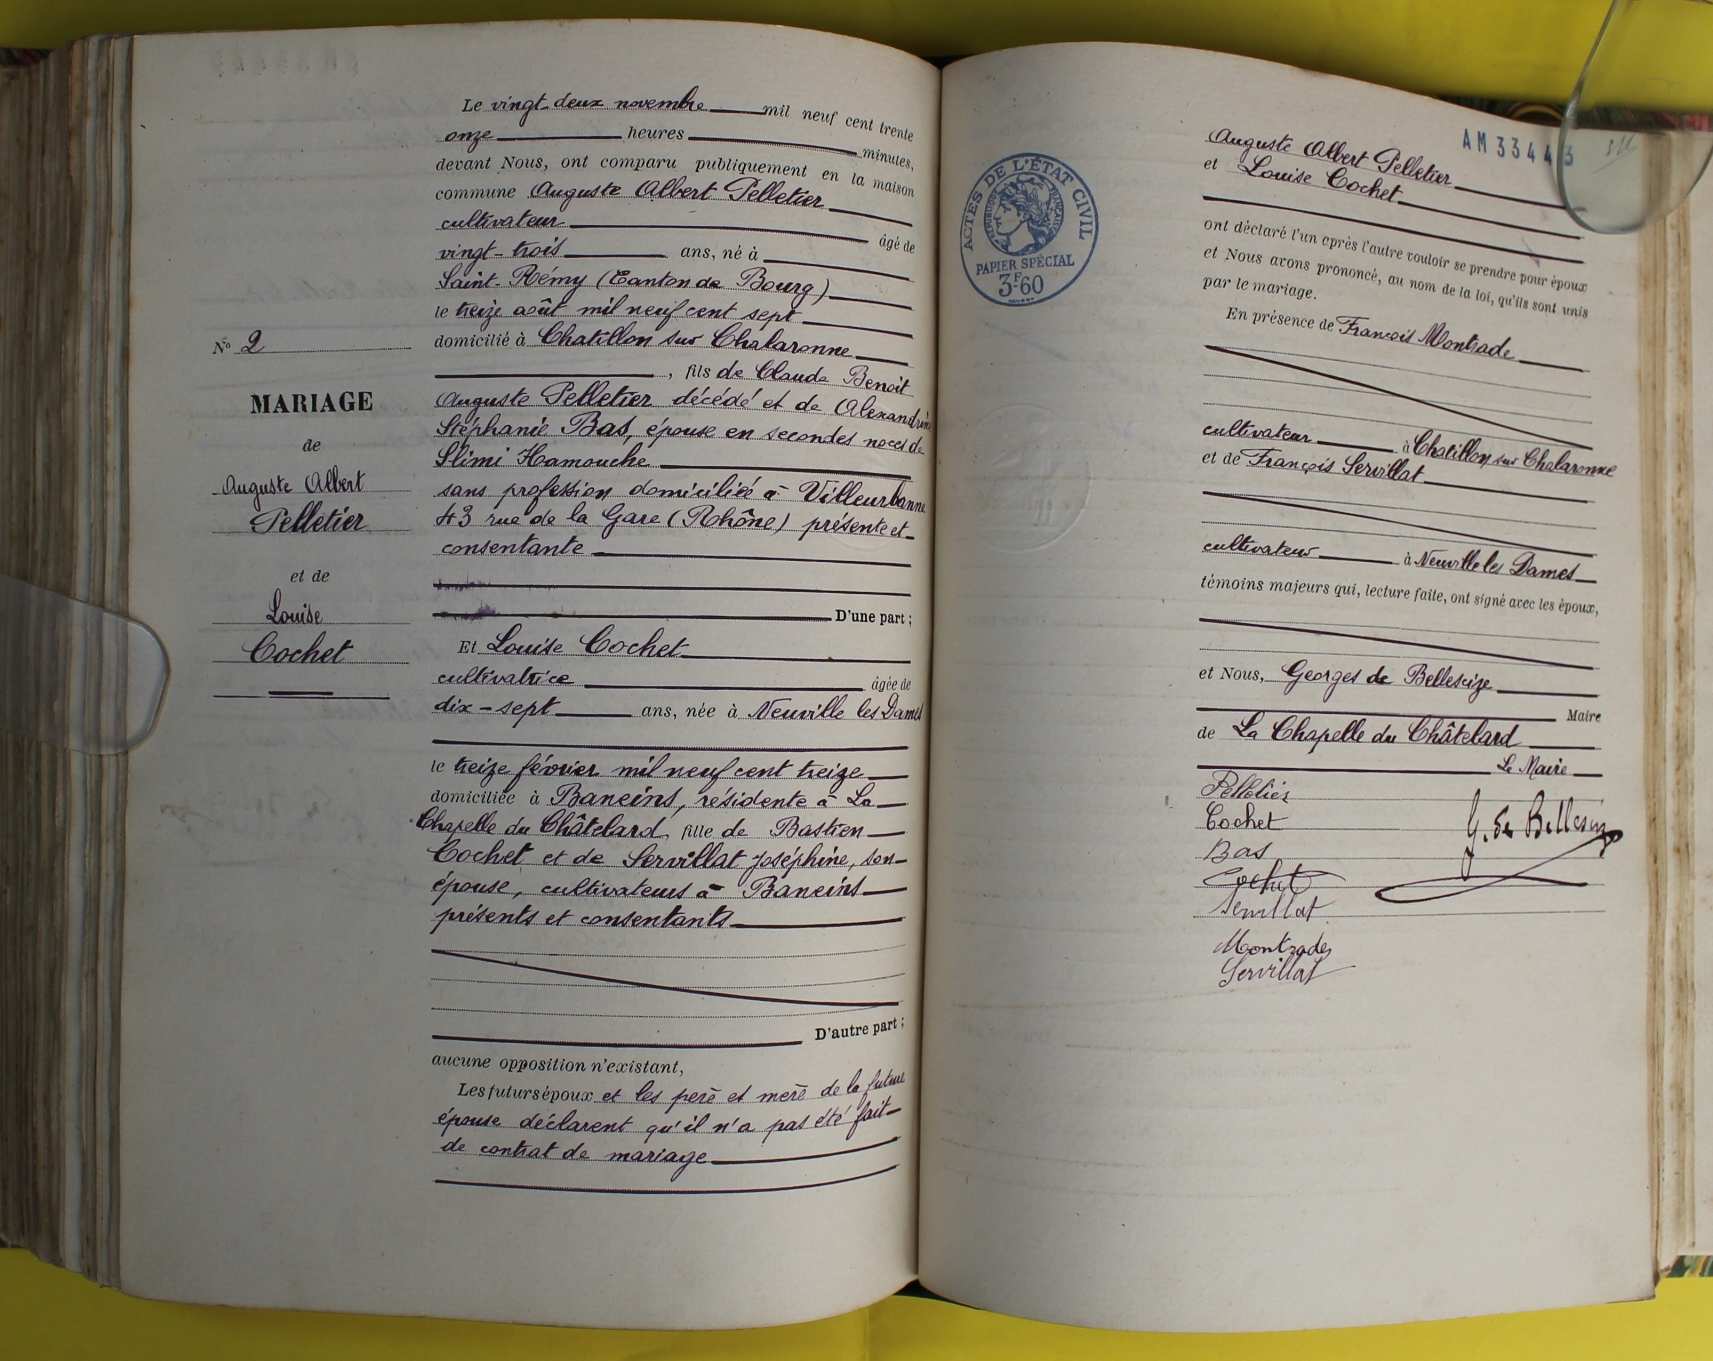 Le vingt-deux novembre mil neuf cent trente
onze heures minutes,
devant Nous, ont comparu publiquement en la maison
commune Auguste Albert Pelletier
cultivateur âgé de
vingt-trois ans, né à
Saint-Rémy (Canton de Bourg)
le treize août mil neuf cent sept
domicilié à Chatillon sur Chalaronne
, fils de Claude Benoit
Auguste Pelletier décédé et de Alexandrine
Stéphanie Bas, épouse en secondes noces de
Slimi Hamouche
sans profession domiciliée à Villeurbanne
43 rue de la Gare (Rhône) présente et
consentante
D'une part ;
Et Louise Cochet
cultivatrice âgée de
dix-sept ans, née à Neuville les Dames
le treize février mil neuf cent treize
domiciliée à Baneins, résidente à La
Chapelle du Châtelard, fille de Bastien
Cochet et de Servillat Joséphine, son
épouse, cultivateurs à Baneins
présents et consentants
D'autre part ;
aucune opposition n'existant,
Les futurs époux et les père et mère de la future
épouse déclarent qu'il n'a pas été fait
de contrat de mariage
No 2
MARIAGE
de
Auguste Albert
Pelletier
et de
Louise
Cochet
ACTES DE L'ÉTAT CIVIL
PAPIER SPÉCIAL
3F.60
AM33443
Auguste Albert Pelletier
et Louise Cochet
ont déclaré l'un après l'autre vouloir se prendre pour époux
et Nous avons prononcé, au nom de la loi, qu'ils sont unis
par le mariage.
En présence de François Montrade
cultivateur à Chatillon sur Chalaronne
et de François Servillat
cultivateur à Neuville les Dames
témoins majeurs qui, lecture faite, ont signé avec les époux,
et Nous, Georges de Bellescize
Maire
de La Chapelle du Châtelard
Le Maire
Pelletier
Cochet
G. de Bellescize
Bas
Cochet
Servillat
Montrade
Servillat